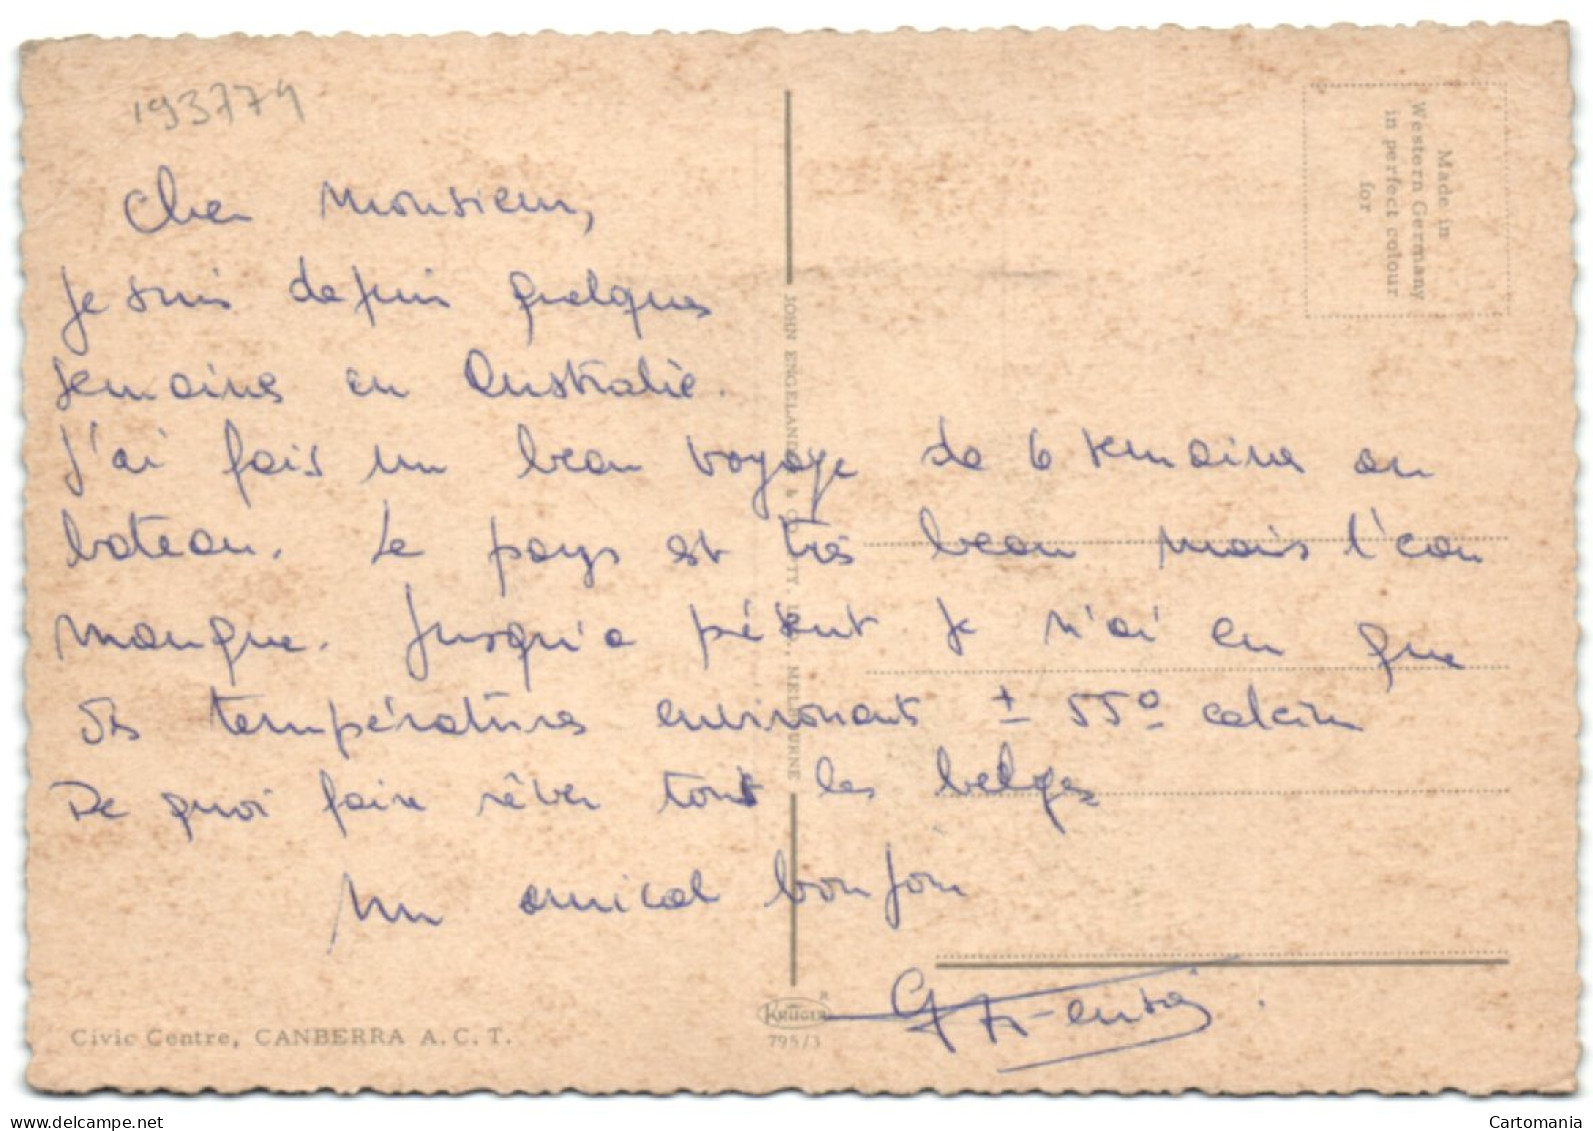 193779
Cher Monsieur,
Je suis depuis quelques
semaine en Australie.
J'ai fais un beau voyage de 6 semaine en
bateau. Le pays est très beau mais l'eau
manque. Jusqu'a pésent je n'ai eu que
des températures environant ± 55º celcius
De quoi faire rêver tout les belges
Un amical bonjour
Civic Centre, CANBERRA A.C.T.
JOHN ENGELANDER & CO. PTY. LTD., MELBOURNE
KRÜGER
795/3
Made in
Western Germany
in perfect colour
for
www.delcampe.net
Cartomania